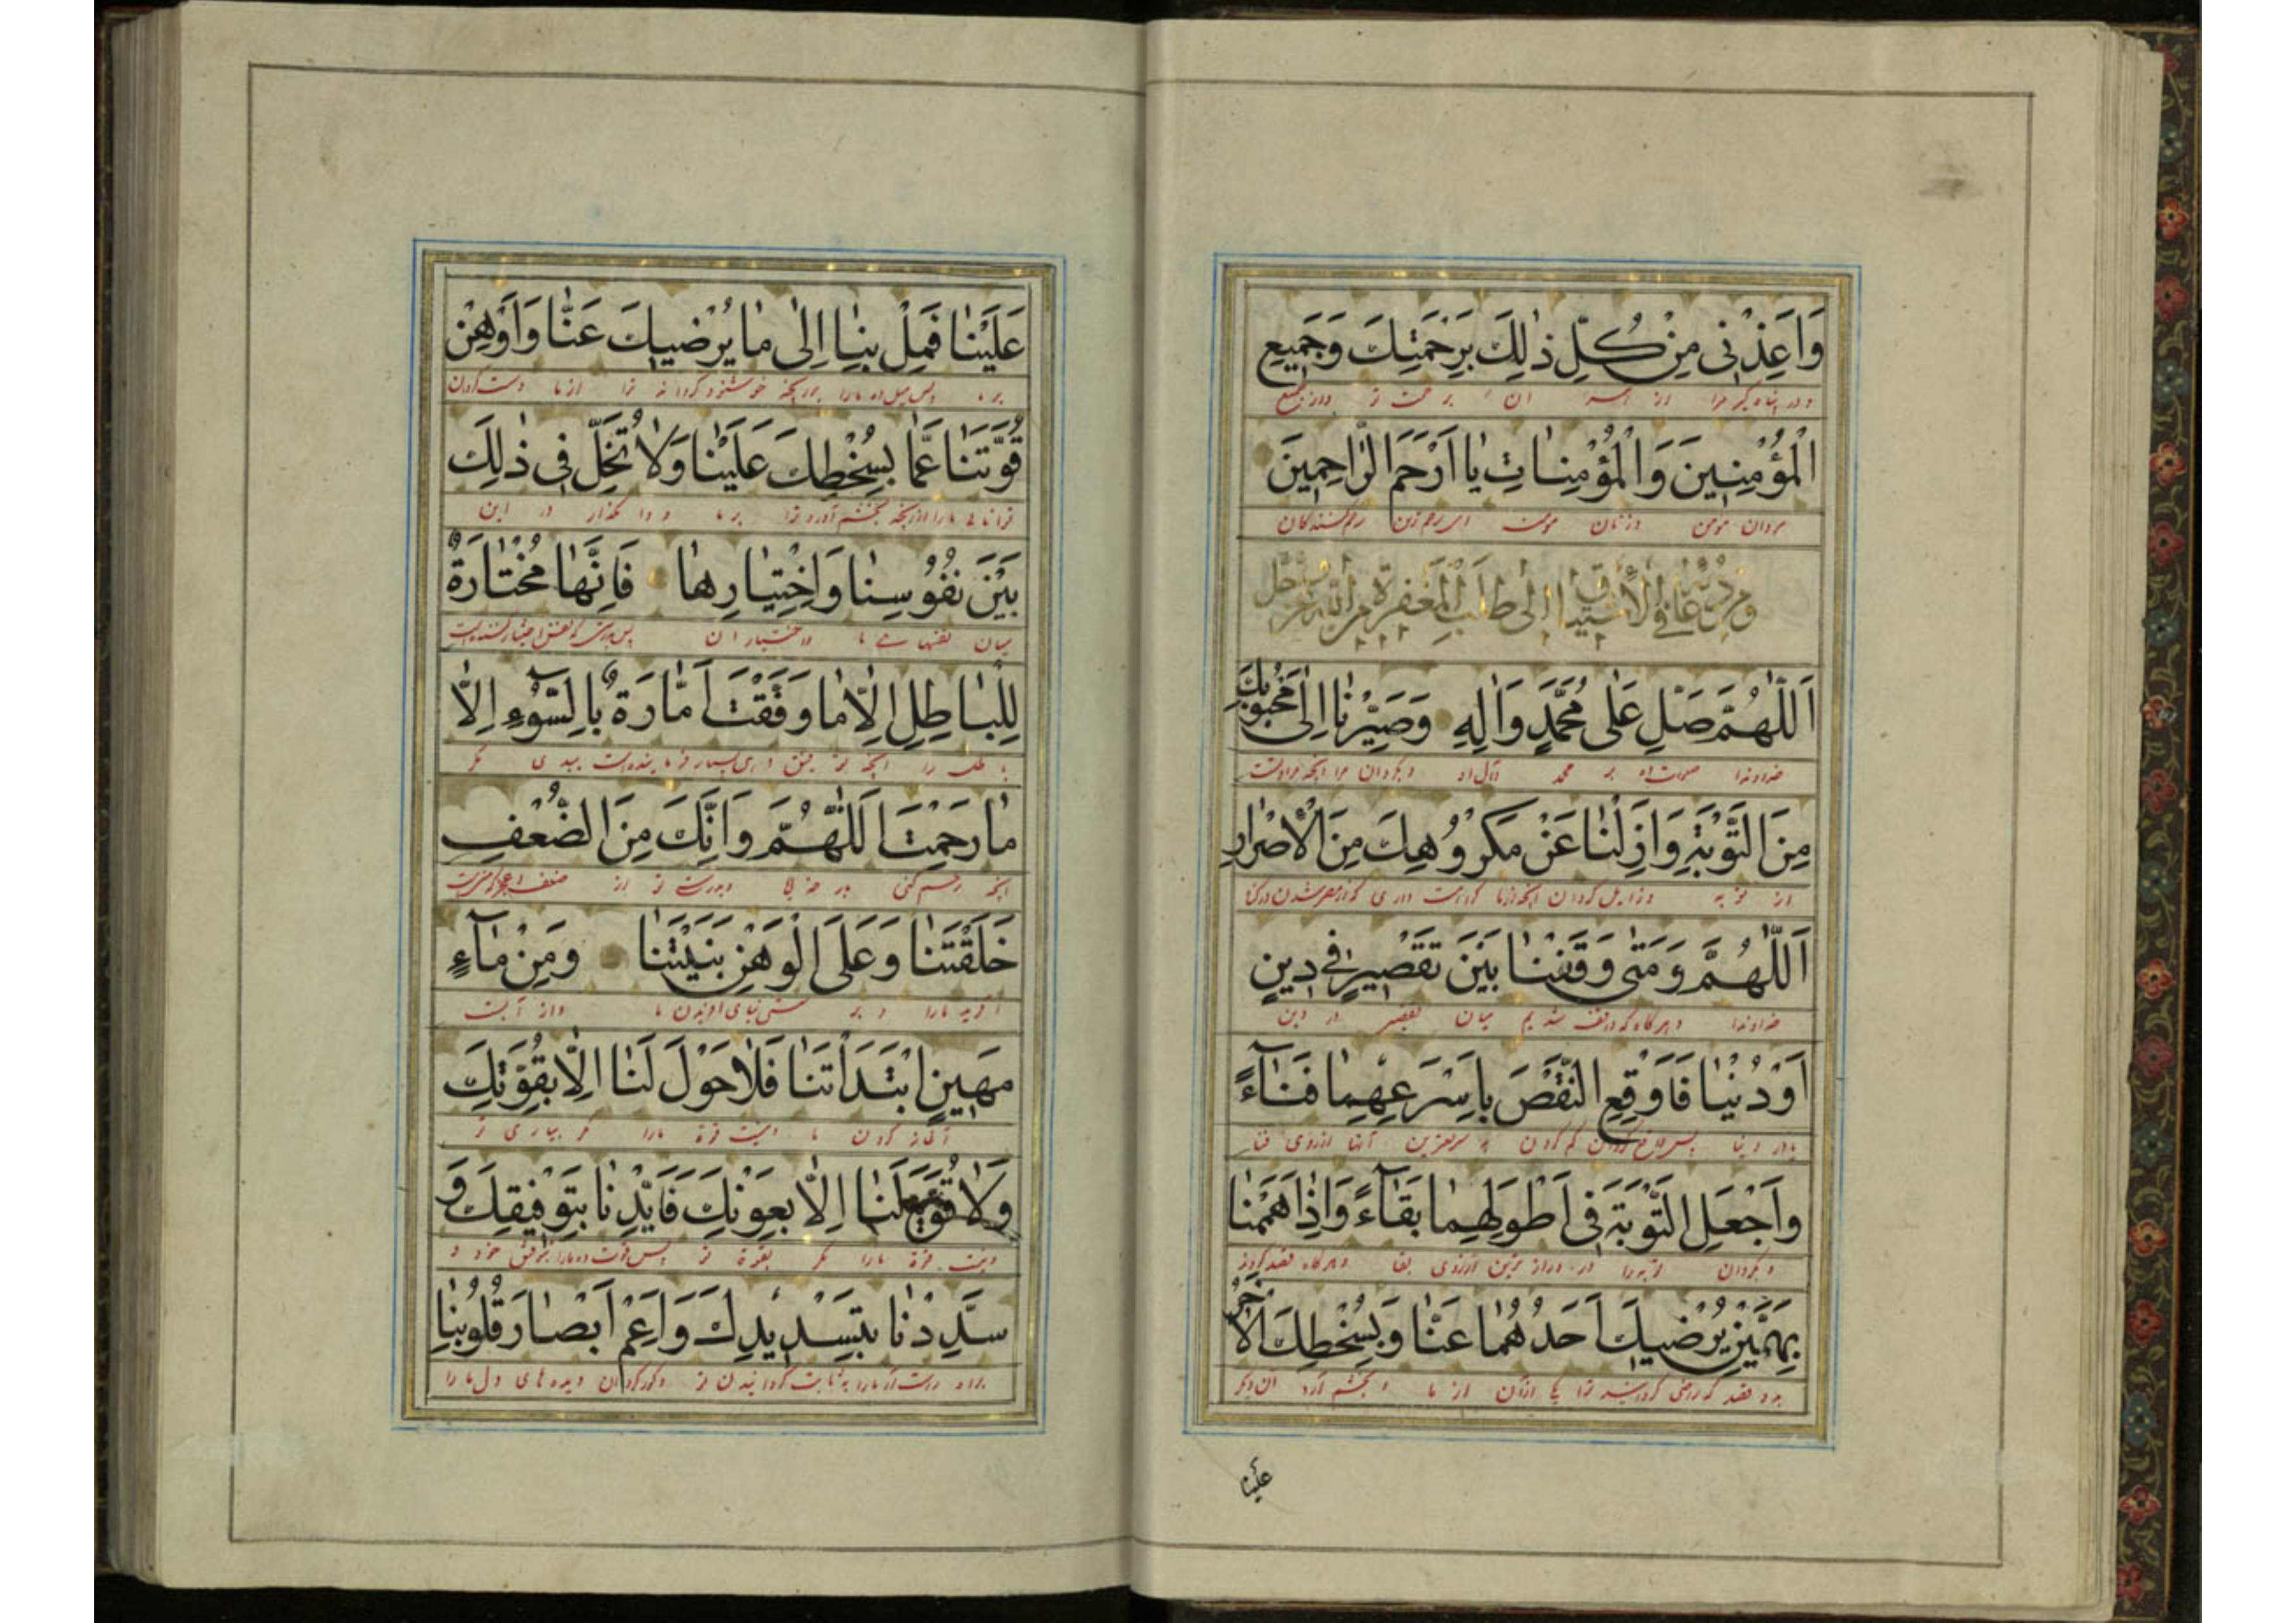 وَاَعِذْنى مِنْ كُلِّ ذٰلِكَ بِرَحْمَتِكَ وَجَميعِ
و در پناه گیر مرا از همه آن بر حمت تو و از جمیع
الْمُؤْمِنينَ وَالْمُؤْمِنٰاتِ يٰا اَرْحَمَ الرّٰاحِمينَ
مردان مؤمن و زنان مؤمنه ای رحم کنندگان
وَمِنْ دُعٰائِهِ فِى الْاِشْتِيٰاقِ اِلٰى طَلَبِ الْمَغْفِرَةِ مِنَ اللّٰهِ عَزَّ وَجَلَّ
اَللّٰهُمَّ صَلِّ عَلٰى مُحَمَّدٍ وَاٰلِهِ وَصَيِّرْنٰا اِلٰى مَحْبُوبِكَ
خداوندا صلوات ده بر محمد و آل او و بگردان مرا
مِنَ التَّوْبَةِ وَاَزِلْنٰا عَنْ مَكْرُوهِكَ مِنَ الْاِصْرٰارِ
از توبه و زایل گردان
اَللّٰهُمَّ وَمَتٰى وَقَفْنٰا بَيْنَ نَقْصَيْنِ فى دينٍ
خداوندا و هر گاه که واقف شدیم میان تقصیر در دین
اَوْ دُنْيٰا فَاَوْقِعِ النَّقْصَ بِاَسْرَعِهِمٰا فَنٰاءً
یا در دنیا پس واقع گردان کم کردن به سریعترین آنها از روی فنا
وَاجْعَلِ التَّوْبَةَ فى اَطْوَلِهِمٰا بَقٰاءً وَاِذٰا هَمَمْنٰا
و بگردان توبه را در دراز ترین از روی بقا و هر گاه قصد کردیم
بِهَمَّيْنِ يُرْضيكَ اَحَدُهُمٰا عَنّٰا وَيُسْخِطُكَ الْاٰخَرُ
بدو قصد که راضی گرداند ترا یکی از آن از ما و بخشم آرد آن دیگر
علینا
عَلَيْنٰا فَمِلْ بِنٰا اِلٰى مٰا يُرْضيكَ عَنّٰا وَاَوْهِنْ
بر ما پس میل ده ما را بدانچه خوشنود گرداند ترا از ما
قُوَّتَنٰا عَمّٰا يُسْخِطُكَ عَلَيْنٰا وَلٰا تُخَلِّ فى ذٰلِكَ
توانائی ما را از آنچه بخشم آورد ترا بر ما و وا مگذار در این
بَيْنَ نُفُوسِنٰا وَاخْتِيٰارِهٰا فَاِنَّهٰا مُخْتٰارَةٌ
میان نفسهای ما و اختیار آن
لِلْبٰاطِلِ اِلّٰا مٰا وَفَّقْتَ اَمّٰارَةٌ بِالسُّوءِ اِلّٰا
باطل را آنچه توفیق دهی بسیار فرماینده است ببدی مگر
مٰا رَحِمْتَ اَللّٰهُمَّ وَاِنَّكَ مِنَ الضُّعْفِ
آنچه رحم کنی بار خدایا و بدرستی تو از ضعف
خَلَقْتَنٰا وَعَلَى الْوَهْنِ بَنَيْتَنٰا وَمِنْ مٰاءٍ
آفریده ما را و بر سستی
مَهينٍ ابْتَدَاْتَنٰا فَلٰا حَوْلَ لَنٰا اِلّٰا بِقُوَّتِكَ
آغاز کردن ما و نیست قوة ما را مگر بیاری تو
وَلٰا قُوَّةَ لَنٰا اِلّٰا بِعَوْنِكَ فَاَيِّدْنٰا بِتَوْفيقِكَ وَ
و نیست قوة ما را مگر بقوة تو پس قوت ده ما را بتوفیق خود و
سَدِّدْنٰا بِتَسْديدِكَ وَاَعْمِ اَبْصٰارَ قُلُوبِنٰا
و کور گردان دیده های دل ما را